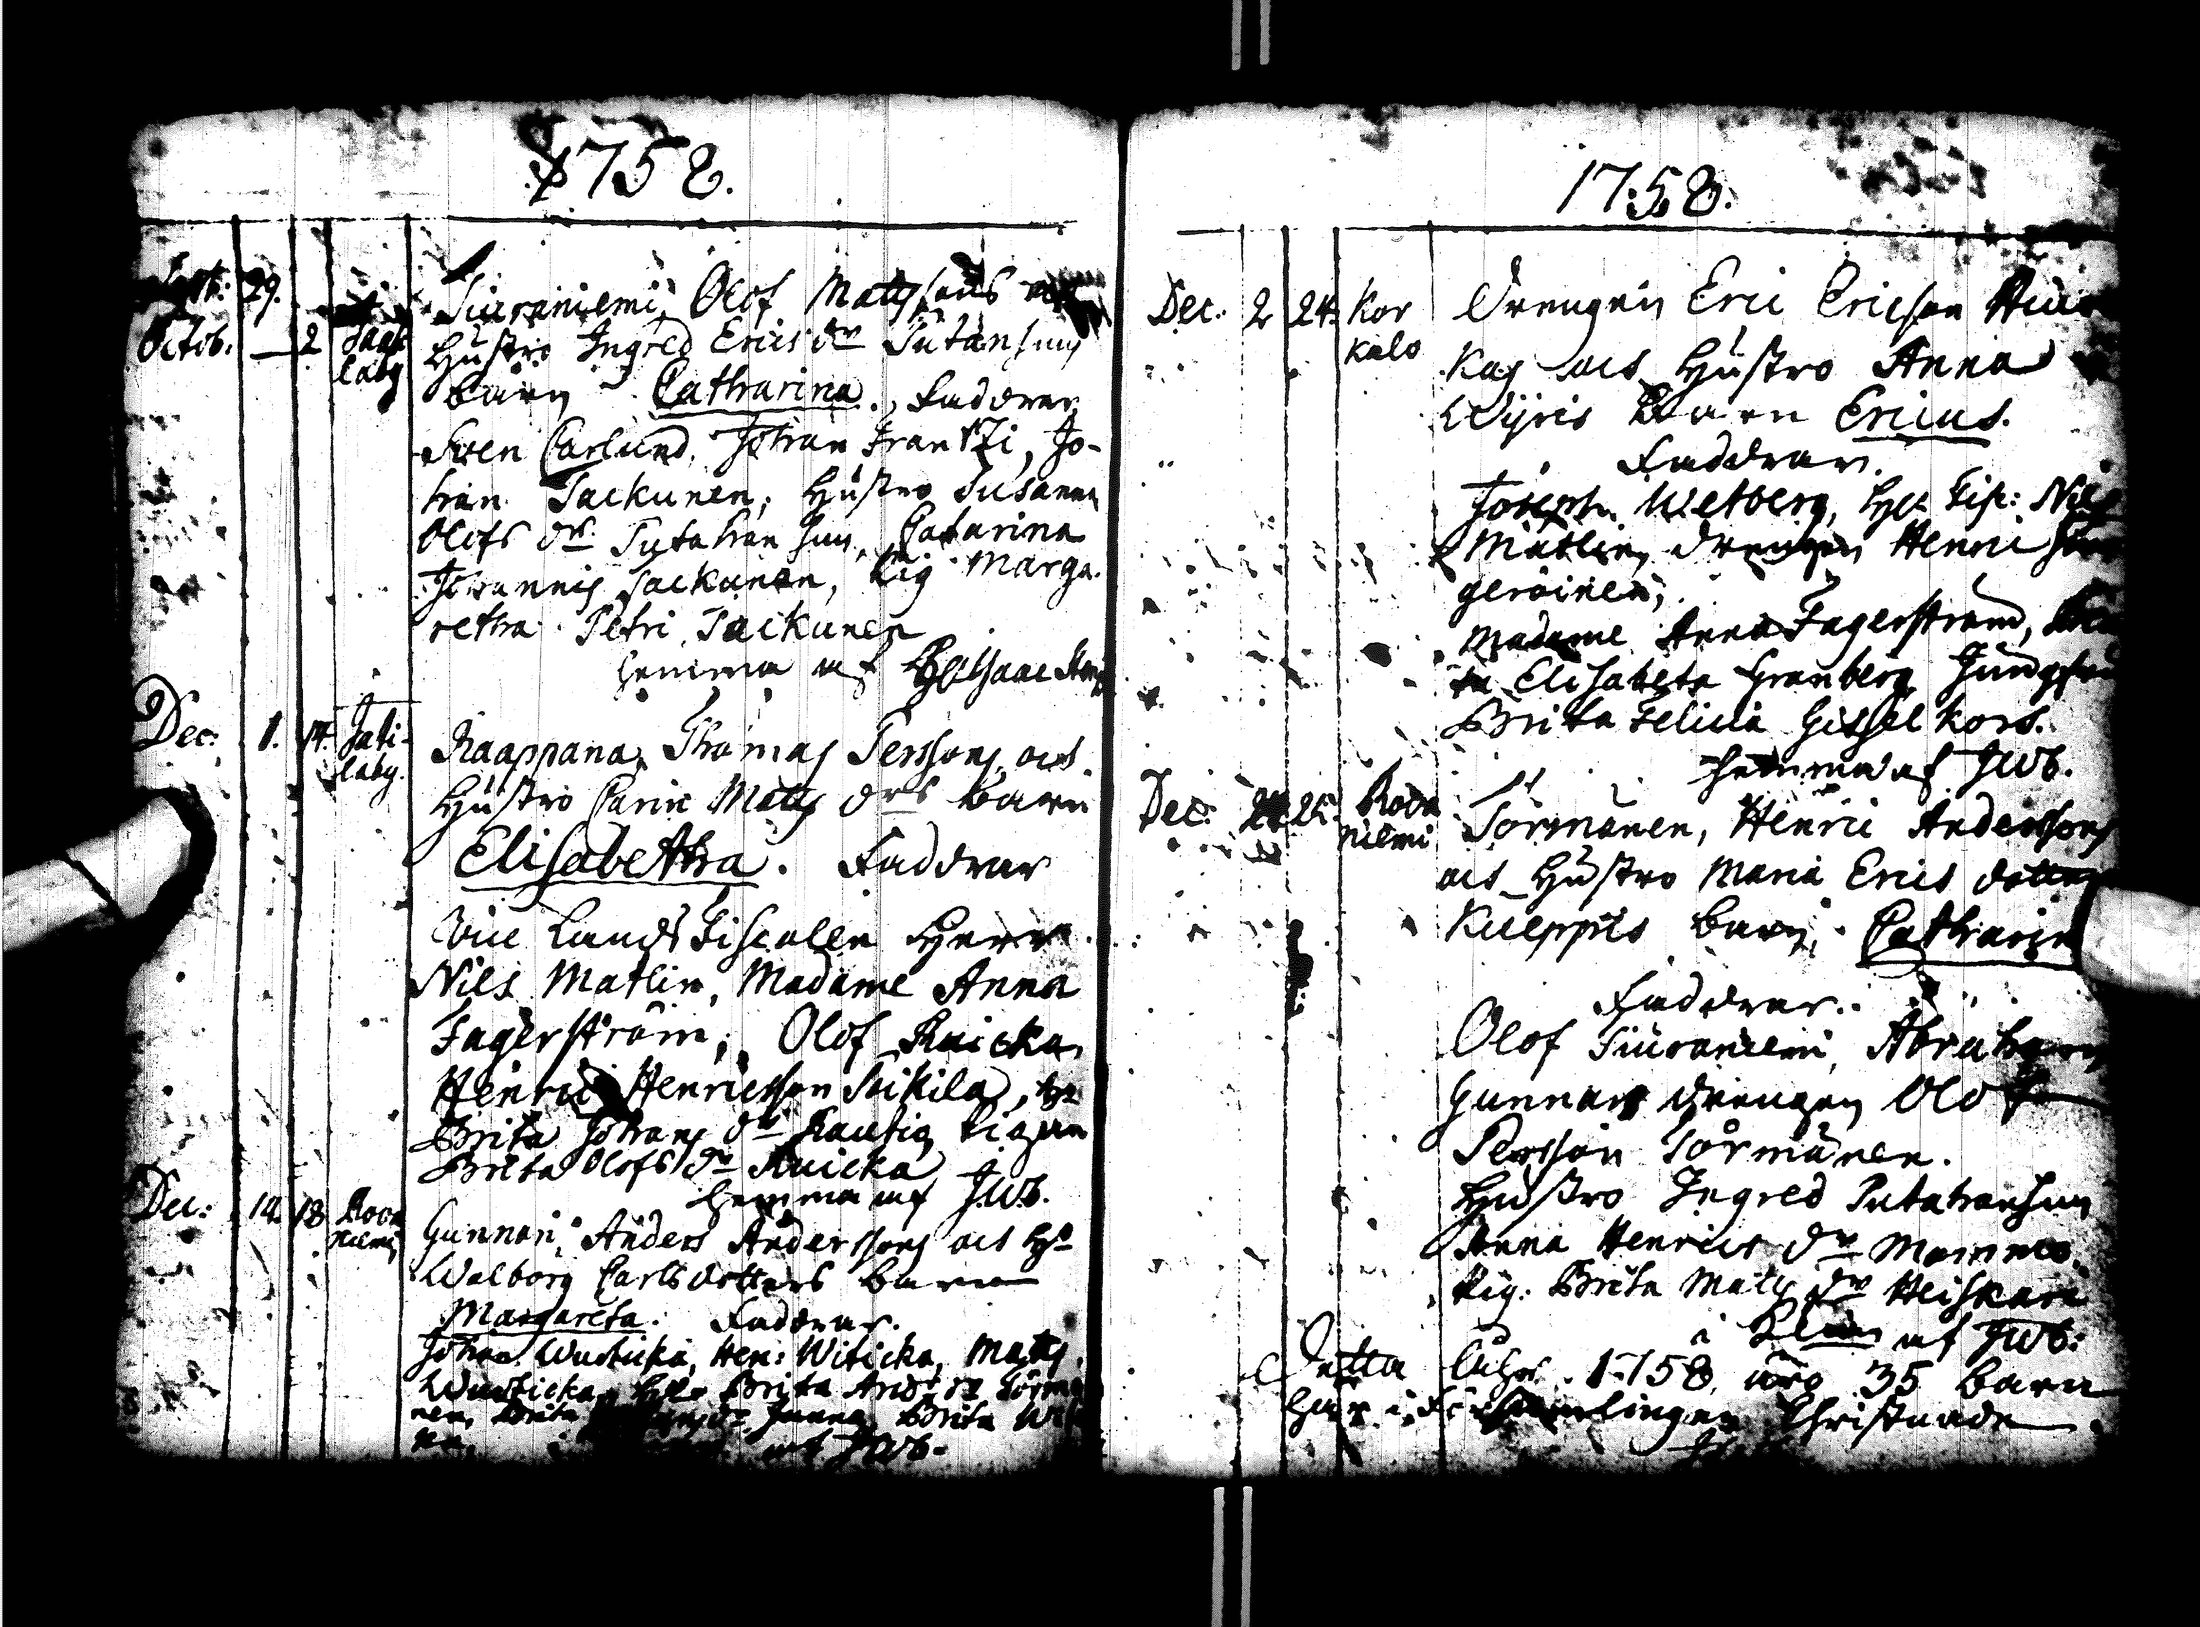 1758.
Sept: 29.
Octob. — 2 Saari
laby
Siuraniemi, Olof Matssons
Hustro Ingred Erics dr Putansuu
barn Catharina. Faddrar
Sven Carlund, Johan Frantzi, Jo-
han Sackunen, Hustro Susanna
Olofs dr. Putahan Suu, Catarina
Johannis Sackunen, Pig Marga-
retha Petri Sackunen
hemma af
Dec: 1. 14. Jati-
laby.
Kaappana, Thomas Perssons ock
Hustro Carin Mats drs barn
Elisabetha. Faddrar
Vice Lands Fiscalen Herr
Nils Matlin, Madame Anna
Fagerström, Olof Kuicka
Henric Henricsson Kikila, h:
Brita Johans dr Rautio, Pigan
Brita Olofs dr Kuicka
hemma af JWb.
Dec: 12. 18 Rova
niemi
Gunnari, Anders Anderssons ock H:
Walborg Carlsdotters barn
Margareta. Faddrar.
Johan Wusticka, Hen: Witicka, Mats
Wusticka, H: Brita And: dr Sörmä
nen, Brita
af JWb.
1758.
Dec. 2 24. Kor
kalo
Drengen Eric Ericson
kas ock Hustro Anna
Wijris Barn Ericus.
Faddrar.
Joseph Wetberg, H: Fisc: Nils
Matlin, drengen Henric
geröinen,
Madame Anna Fagerström,
ta Elisabeta Granberg Jungfru
Brita Felicia Gisselkors.
hemma af JWb.
Dec: 25. Rova
niemi
Sörmänen, Henric Anderssons
ock Hustro Maria Erics dotter
Kueppis barn, Catharina
Faddrar.
Olof Siuraniemi, Abraham
Gunnari drengen Olof
Persson Sörmänen.
Hustro Ingred Putahansuu
Anna Henrics dr Mommo.
Pig: Brita Mats dr Heiskari
i af JWb:
Detta åhr 1758, äro 35 barn
här i Församlingen Christnade